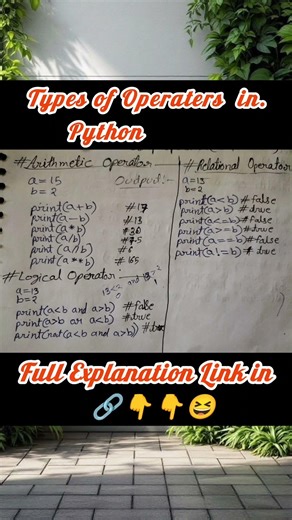 Types of Operaters in.
Python
#Arithmetic Operator
a=15 Output:-
b=2
print(a+b) #17
print(a-b) #13
print(a*b)
print(a/b) #7.5
print(a//b)
print(a**b)
#Logical Operator:-
a=13
b=2
print(a<b and a>b) #false
print(a>b or a<b) #true
print(not(a<b and a>b)) #true
#Relational Operator
a=13
b=2
print(a<b) #false
print(a>b) #true
print(a<=b) #false
print(a>=b) #true
print(a==b) #false
print(a!=b) #true
Full Explanation Link in
🔗👇👇😆